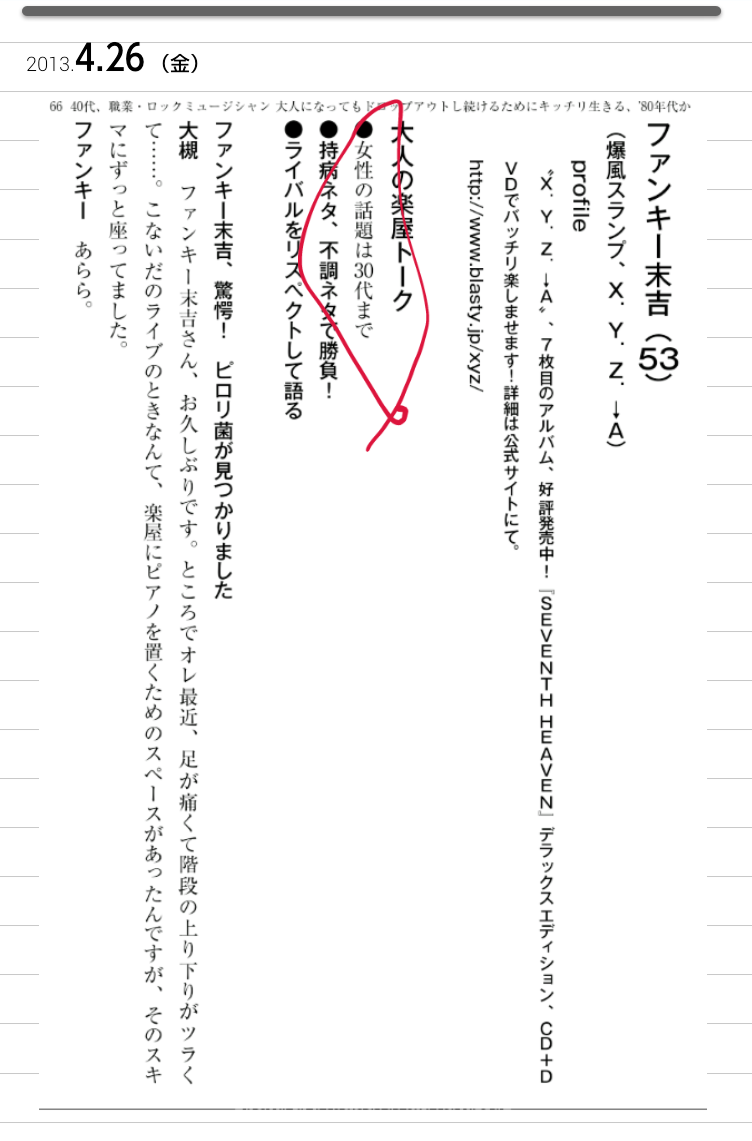 2013.4.26（金）
66 40代、職業・ロックミュージシャン 大人になってもドロップアウトし続けるためにキッチリ生きる、'80年代か
ファンキー末吉（53）
（爆風スランプ、X．Y．Z．→A）
profile
〝X．Y．Z．→A〟、7枚目のアルバム、好評発売中！『SEVENTH HEAVEN』デラックスエディション、CD+D
VDでバッチリ楽しませます！詳細は公式サイトにて。
http://www.blasty.jp/xyz/
大人の楽屋トーク
●女性の話題は30代まで
●持病ネタ、不調ネタで勝負！
●ライバルをリスペクトして語る
ファンキー末吉、驚愕！　ピロリ菌が見つかりました
大槻　ファンキー末吉さん、お久しぶりです。ところでオレ最近、足が痛くて階段の上り下りがツラく
て……。こないだのライブのときなんて、楽屋にピアノを置くためのスペースがあったんですが、そのスキ
マにずっと座ってました。
ファンキー　あらら。